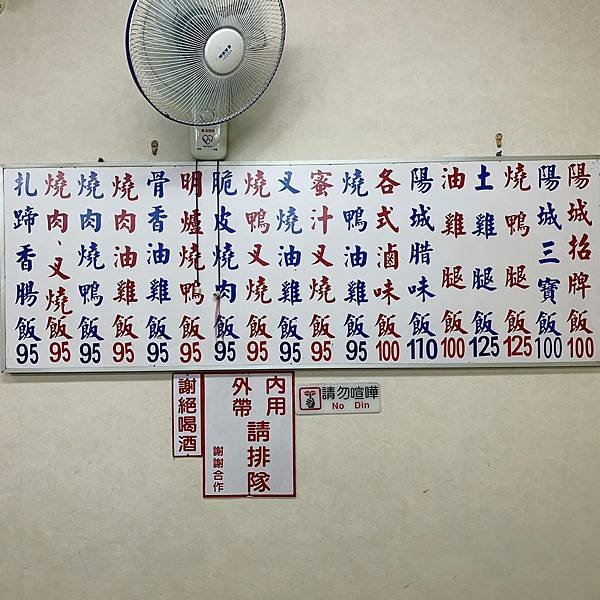 陽城招牌飯100
陽城三寶飯100
燒鴨腿飯125
土雞腿飯125
油雞腿飯100
陽城腊味飯110
各式滷味飯100
燒鴨油雞飯95
蜜汁叉燒飯95
叉燒油雞飯95
燒鴨叉燒飯95
脆皮燒肉飯95
明爐燒鴨飯95
骨香油雞飯95
燒肉油雞飯95
燒肉燒鴨飯95
燒肉、叉燒飯95
扎蹄香腸飯95
請勿喧嘩
No Din
內用
外帶
請排隊
謝謝合作
謝絕喝酒